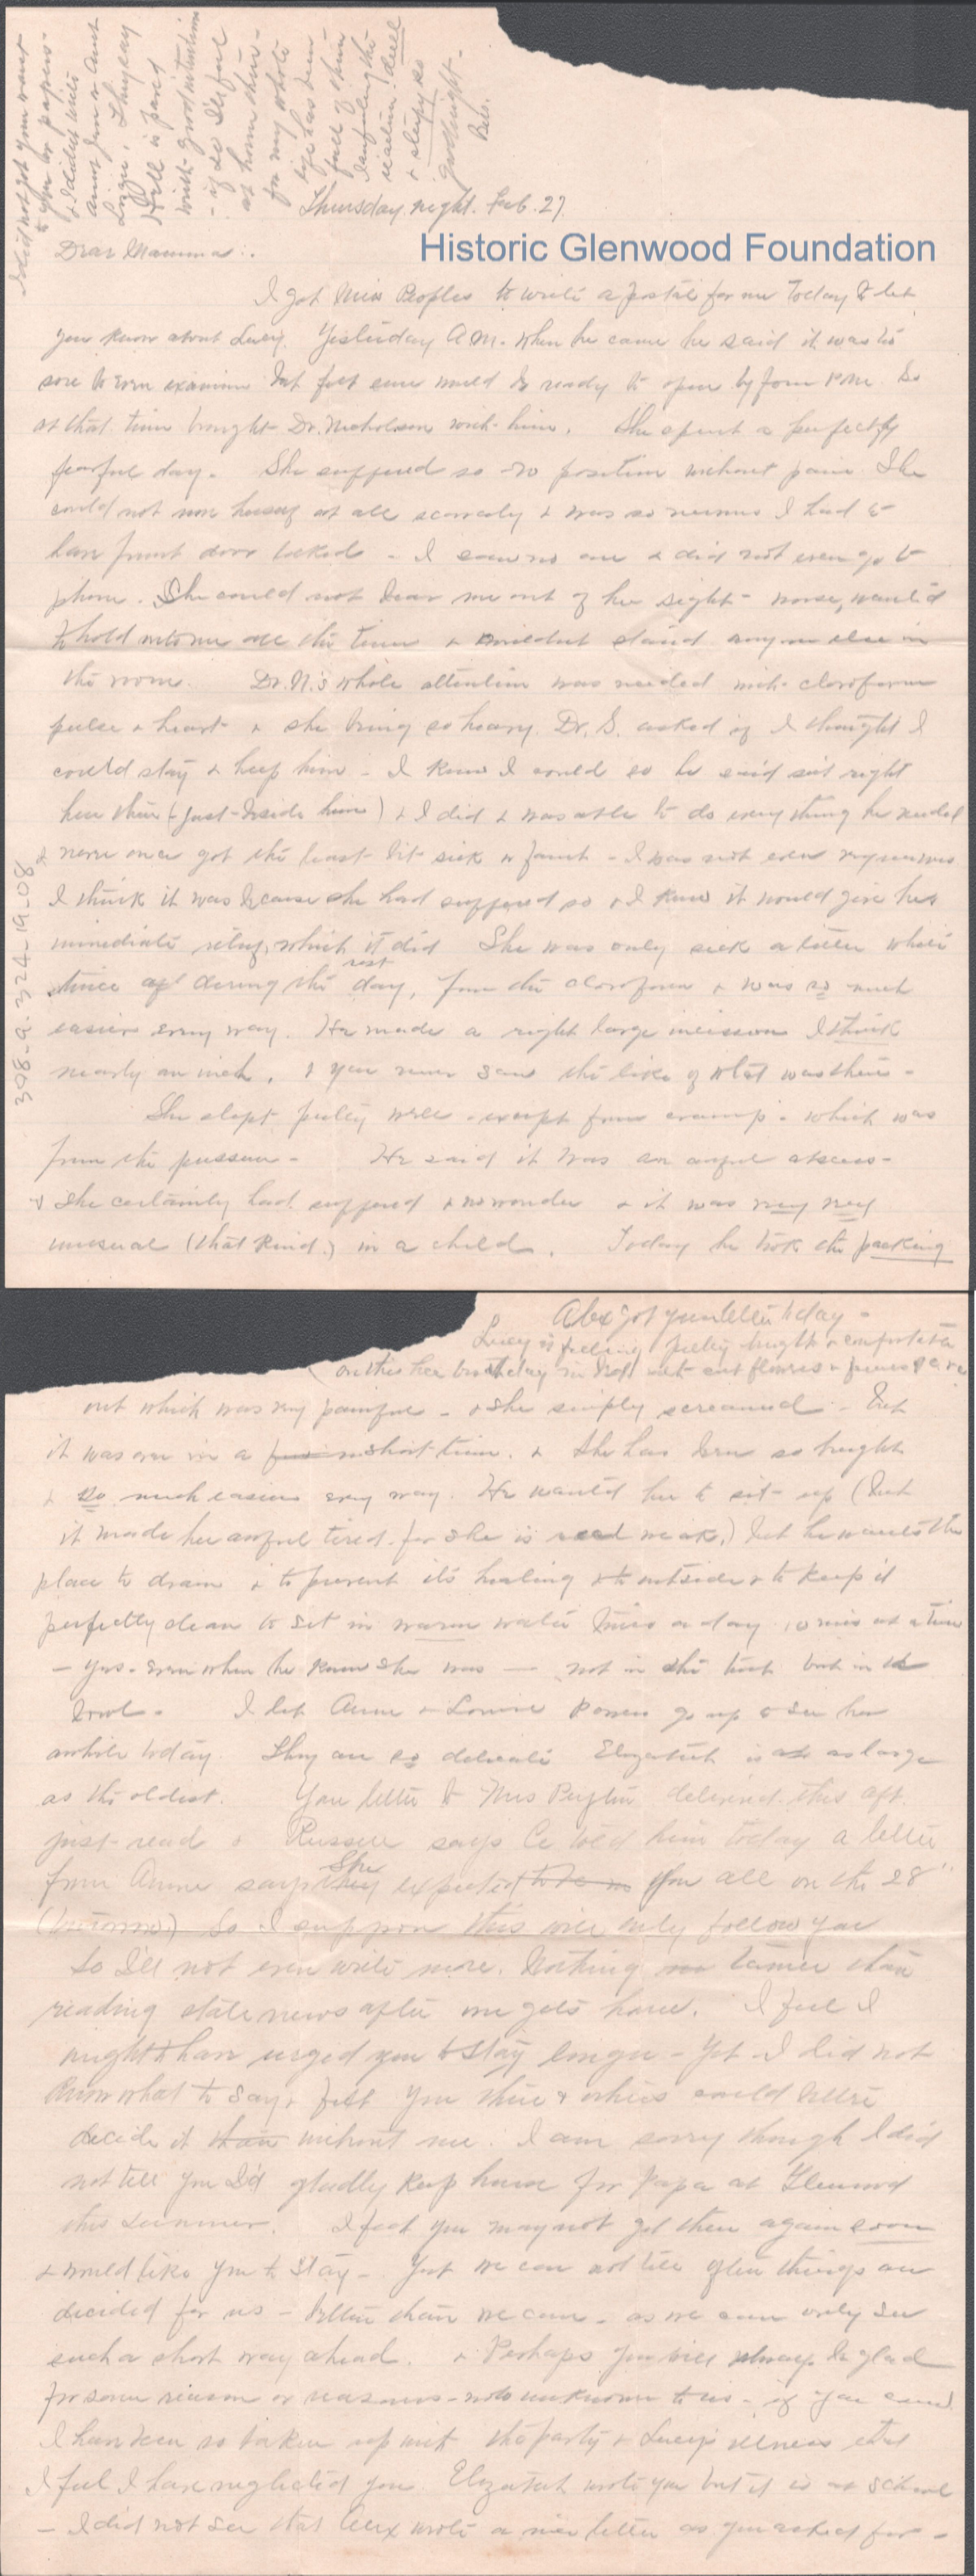 I did not get your
to you or papers -
& I didn't write
Aunt Jen or Aunt
Lizzie. They say
Hell is paved
with good intentions
- if so I'll feel
at home there -
for my whole
life has been
full of them
good night -
& sleepy so
Thursday night. Feb. 27
Historic Glenwood Foundation
Dear Mamma:.
I got Miss Peoples to write a postal for me today & let
you know about Lucy. Yesterday A.M. when he came he said it was too
sore to even examine but felt sure would be ready to open by four P.M. So
at that time brought Dr. Nicholson with him. She spent a perfectly
fearful day. She suffered so no position without pain. She
could not move herself at all scarcely & was so nervous I had to
have front door locked - I saw no one & did not even go to
phone. She could not bear me out of her sight - worse, wanted
to hold onto me all the time & wouldn't stand anyone else in
the room. Dr. N.'s whole attention was needed with cloroform
pulse & heart & she being so heavy. Dr. S. asked if I thought I
could stay & help him - I knew I could so he said sit right
here then (just beside him) & I did & was able to do everything he needed
& never once got the least bit sick or faint - I was not even nervous
I think it was because she had suffered so & I knew it would give her
immediate relief, which it did. She was only sick a little while
twice during the rest day, from the cloroform & was so much
easier every way. He made a right large incission I think
nearly an inch, & you never saw the like of what was there -
She slept pretty well - except from cramp - which was
from the pressure - He said it was an awful abscess -
& she certainly had suffered & no wonder & it was very very
unusual (that kind) in a child. Today he took the packing
398-a-324-19-08
Alex got your letter today -
Lucy is feeling pretty bright & comfortable
on this her birthday in bed with cut flowers &
out which was very painful - & she simply screamed - but
it was over in a few in short time. & She has been so bright
& so much easier every way. He wanted her to sit up (but
it made her awful tired - for she is real weak,) but he wants the
place to drain & to prevent its healing outside & to keep it
perfectly clean to sit in warm water twice a day 10 min at a time
- yes - even when he knew she was - not in the tub but in the
bowl. I let Anne & Louise Powers go up to see her
awhile today. They are so delicate Elizabeth is as large
as the oldest. Your letter to Mrs delivered this aft.
just read & Russell says Ce told him today a letter
from Anne says they She expected to be you all on the 28"
(tomorrow) So I suppose this will only follow you
So I'll not even write more. Nothing tamer than
reading state news after one gets home. I feel I
might have urged you to stay longer - Yet I did not
know what to say & felt you there & others could better
decide it than without me. I am sorry though I did
not tell you I'd gladly keep house for Papa at Glenwood
this summer. I feel you may not get there again soon
& would like you to stay - Yet we can not tell often things are
decided for us - better than we can - as we can only see
such a short way ahead. & Perhaps you will always be glad
for some reason or reasons - now unknown to us - if you came.
I have been so taken up with the party & Lucy's illness that
I feel I have neglected you. Elizabeth wrote you but it is at school
- I did not see that Alex wrote a nice letter as you asked for -